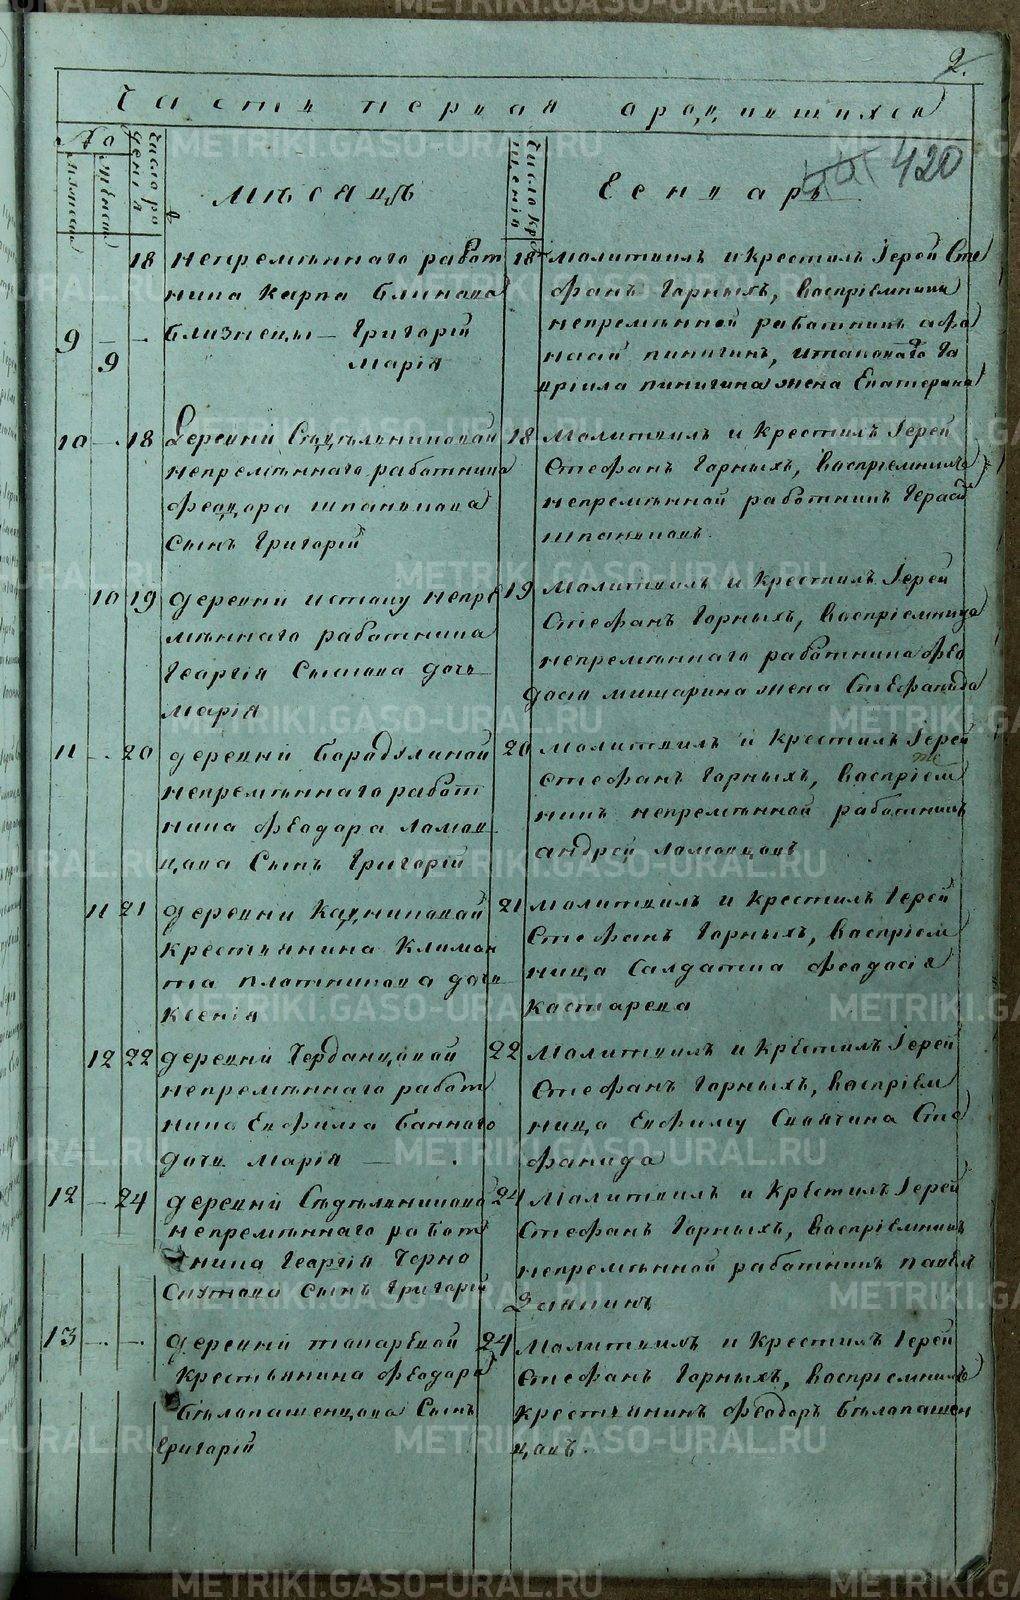 2.
Часть первая ородившихся
№
мужеск
женск
Число ро
ждения
Мѣсяцъ
Число кре
щенія
Генварь
420
18 непремѣннаго работ
ника Карпа Блинова
9 - - близнецы - Григорій
9 Марія
18 Молитвилъ и крестилъ Іерей Сте
фанъ Горныхъ, Воспріемники
непремѣнной работникъ Афа
насій Пинигинъ, и такого Га
вріила Пинигина жена Екатерина
10 - 18 Деревни Сѣдѣльниковой
непремѣннаго работника
Феодора Шпанькова
Сынъ Григорій
18 Молитвилъ и Крестилъ Іерей
Стефанъ Горныхъ, Воспріемникъ
непремѣнной работникъ Герас
Шпаньковъ.
10 19 деревни Истоку непре
мѣннаго работника
Георгія Сыскова дочь
Марія
19 Молитвилъ и Крестилъ Іерей
Стефанъ Горныхъ, Воспріемница
непремѣннаго работника Фео
досія Мишарина жена Стефанида
11 - 20 деревни Бородулиной
непремѣннаго работ
ника Феодора Ломов
цова Сынъ Григорій
20 Молитвилъ и Крестилъ Іерей
Стефанъ Горныхъ, Воспріем
никъ непремѣнной работникъ
Андрей Ломовцовъ
11 21 деревни Кадниковой
Крестьянина Климон
та Плотникова дочь
Ксенія
21 Молитвилъ и Крестилъ Іерей
Стефанъ Горныхъ, Воспріем
ница Салдатка Феодосія
Костарева
12 22 деревни Чердынцовой
непремѣннаго работ
ника Евфима Баннаго
дочь Марія -
22 Молитвилъ и Крестилъ Іерей
Стефанъ Горныхъ, Воспріем
ница Ефиму Стө
фанида
12 - 24 деревни Сѣдѣльниковой
непремѣннаго работ
ника Георгія Черно
Скутова Сынъ Григорій
24 Молитвилъ и Крестилъ Іерей
Стефанъ Горныхъ, Воспріемникъ
непремѣнной работникъ Павелъ
13 - - деревни Токаревой
Крестьянина Феодора
Бѣлопашенцова Сынъ
Григорій
24 Молитвилъ и Крестилъ Іерей
Стефанъ Горныхъ, Воспріемникъ
Крестьянинъ Феодоръ Бѣлопашен
цовъ.
METRIKI.GASO-URAL.RU